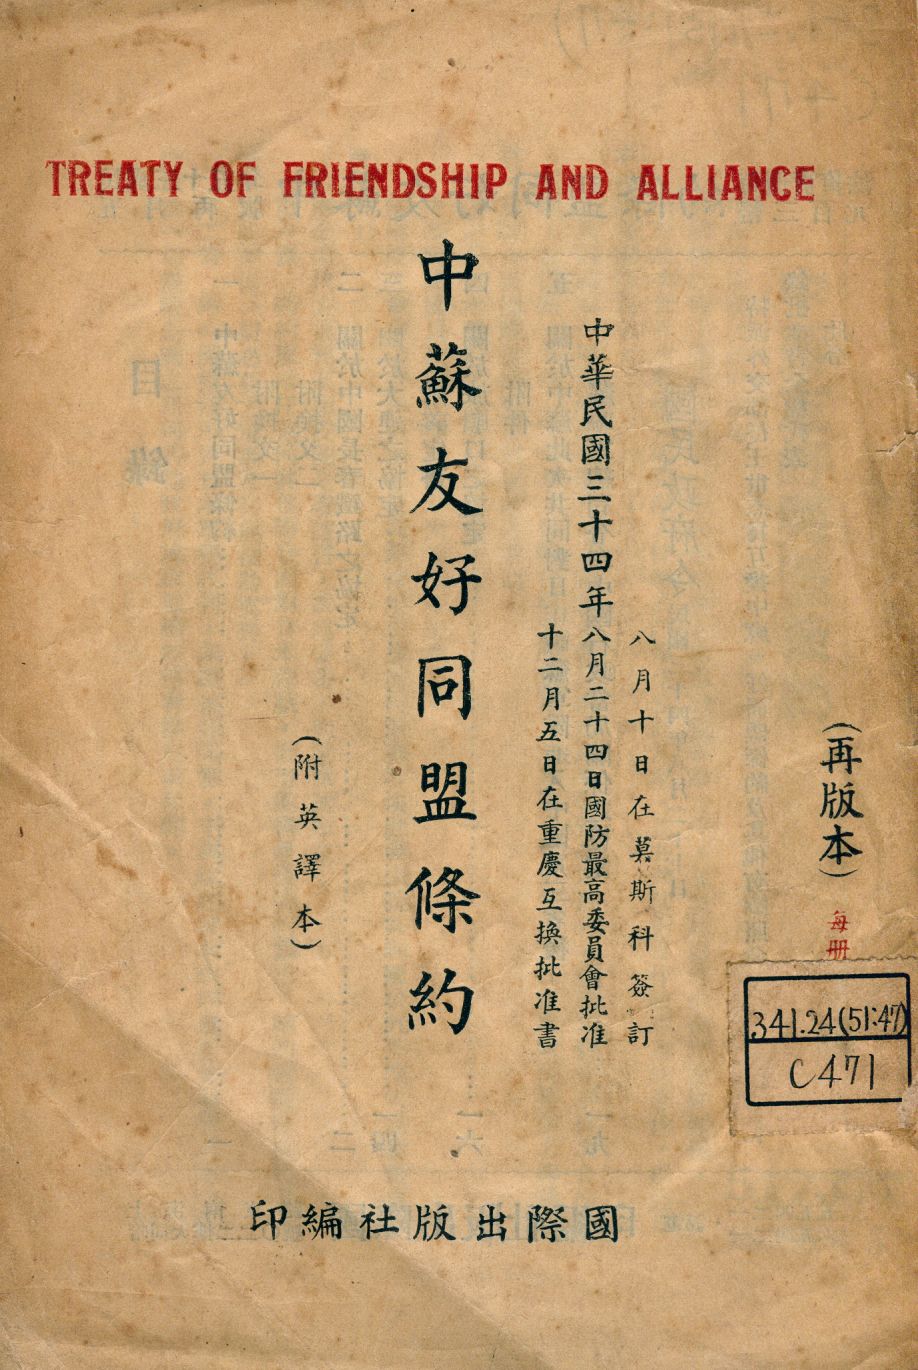 TREATY OF FRIENDSHIP AND ALLIANCE
（再版本）
每册
八月十日在莫斯科簽訂
中華民國三十四年八月二十四日國防最高委員會批准
十二月五日在重慶互換批准書
中蘇友好同盟條約
（附英譯本）
341.24(51:47)
C471
國際出版社編印